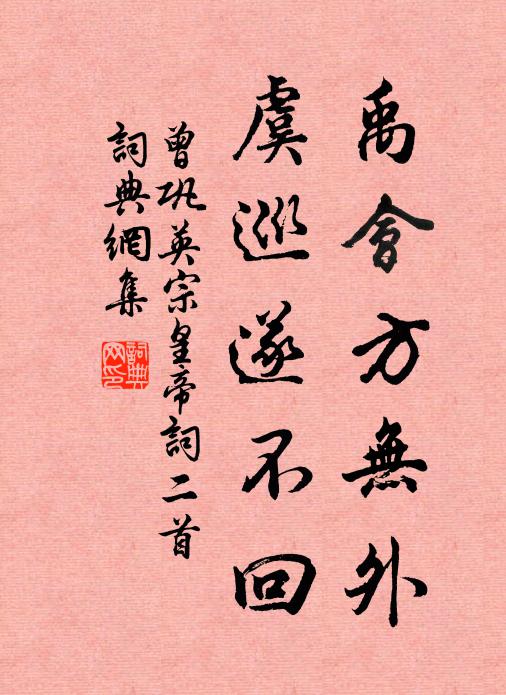 禹會方無外
虞巡遂不回
曾巩英宗皇帝詞二首
詞典網集
詞典网印